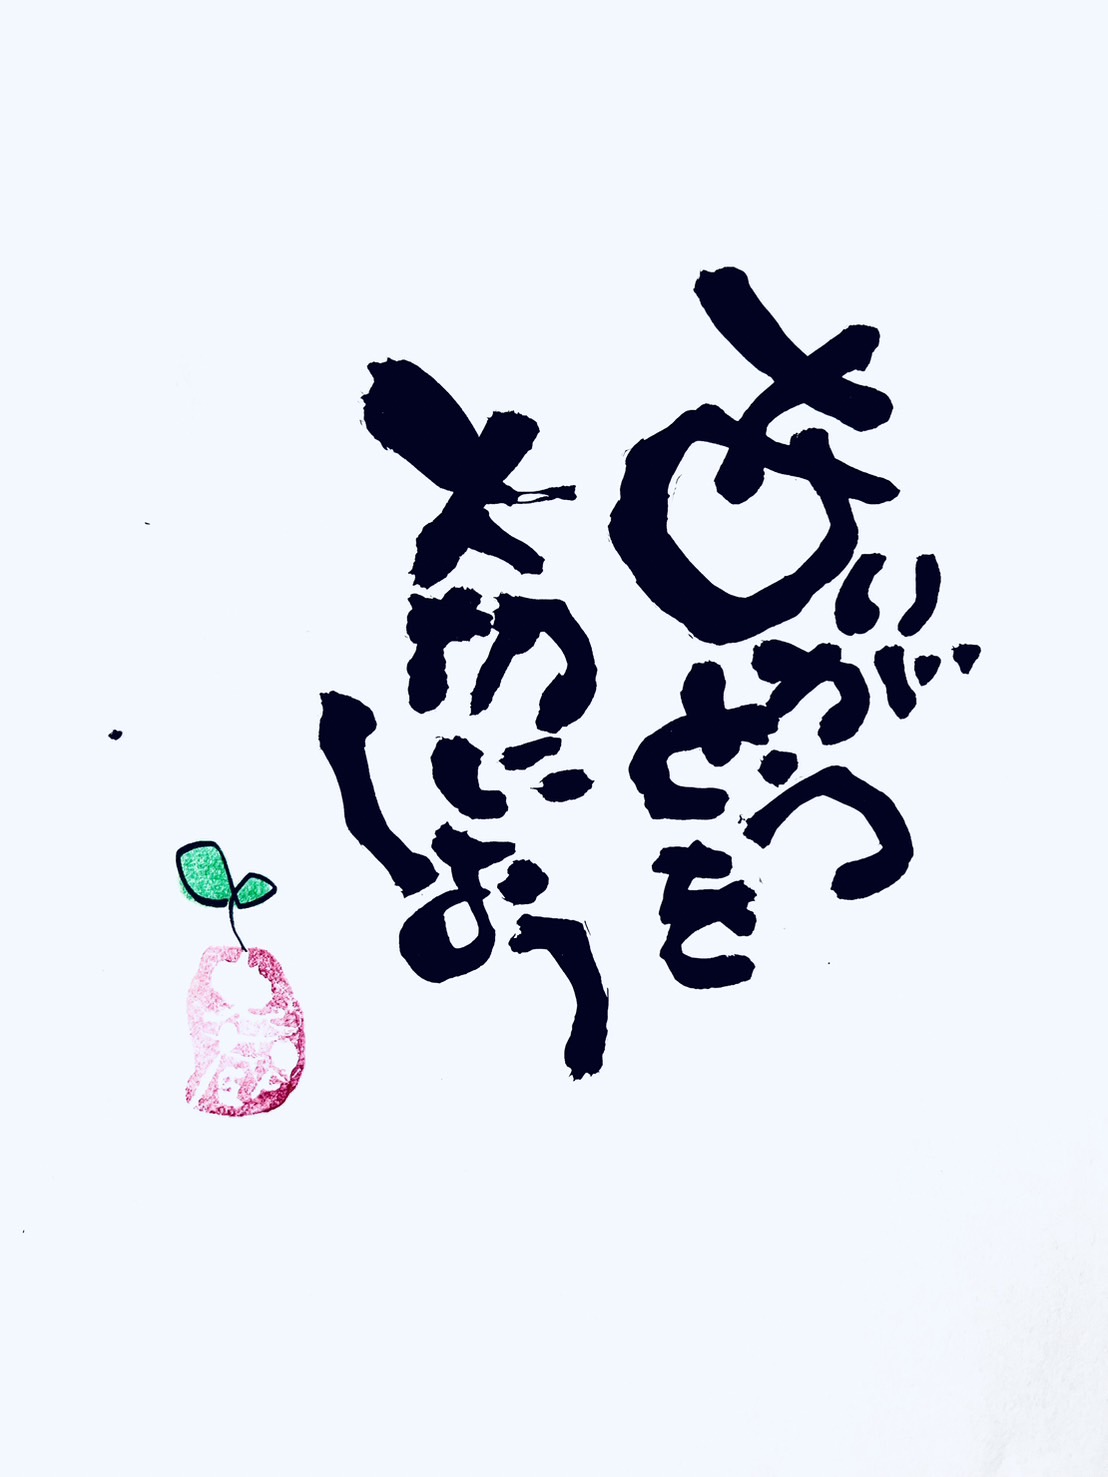 ありがとうを
大切にしよう